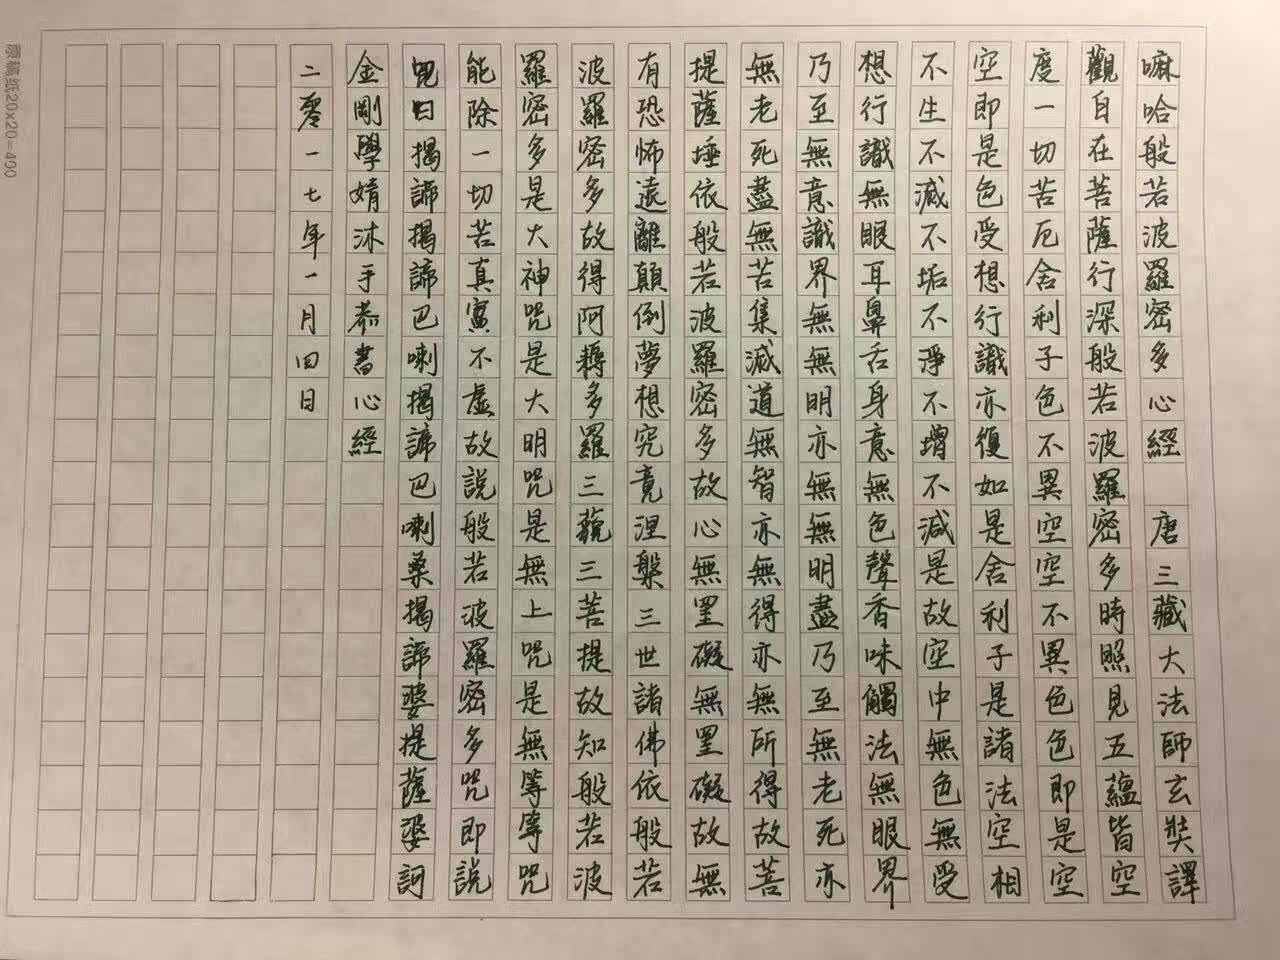 嘛哈般若波羅密多心經 唐三藏大法師玄奘譯
觀自在菩薩行深般若波羅密多時照見五蘊皆空
度一切苦厄舍利子色不異空空不異色色即是空
空即是色受想行識亦復如是舍利子是諸法空相
不生不滅不垢不淨不增不減是故空中無色無受
想行識無眼耳鼻舌身意無色聲香味觸法無眼界
乃至無意識界無無明亦無無明盡乃至無老死亦
無老死盡無苦集滅道無智亦無得亦無所得故菩
提薩埵依般若波羅密多故心無罣礙無罣礙故無
有恐怖遠離顛倒夢想究竟涅槃三世諸佛依般若
波羅密多故得阿耨多羅三藐三菩提故知般若波
羅密多是大神咒是大明咒是無上咒是無等等咒
能除一切苦真實不虛故說般若波羅密多咒即說
咒曰揭諦揭諦巴喇揭諦巴喇桑揭諦婆提薩婆訶
金剛學婧沐手恭書心經
二零一七年一月四日
原稿纸20x20=400